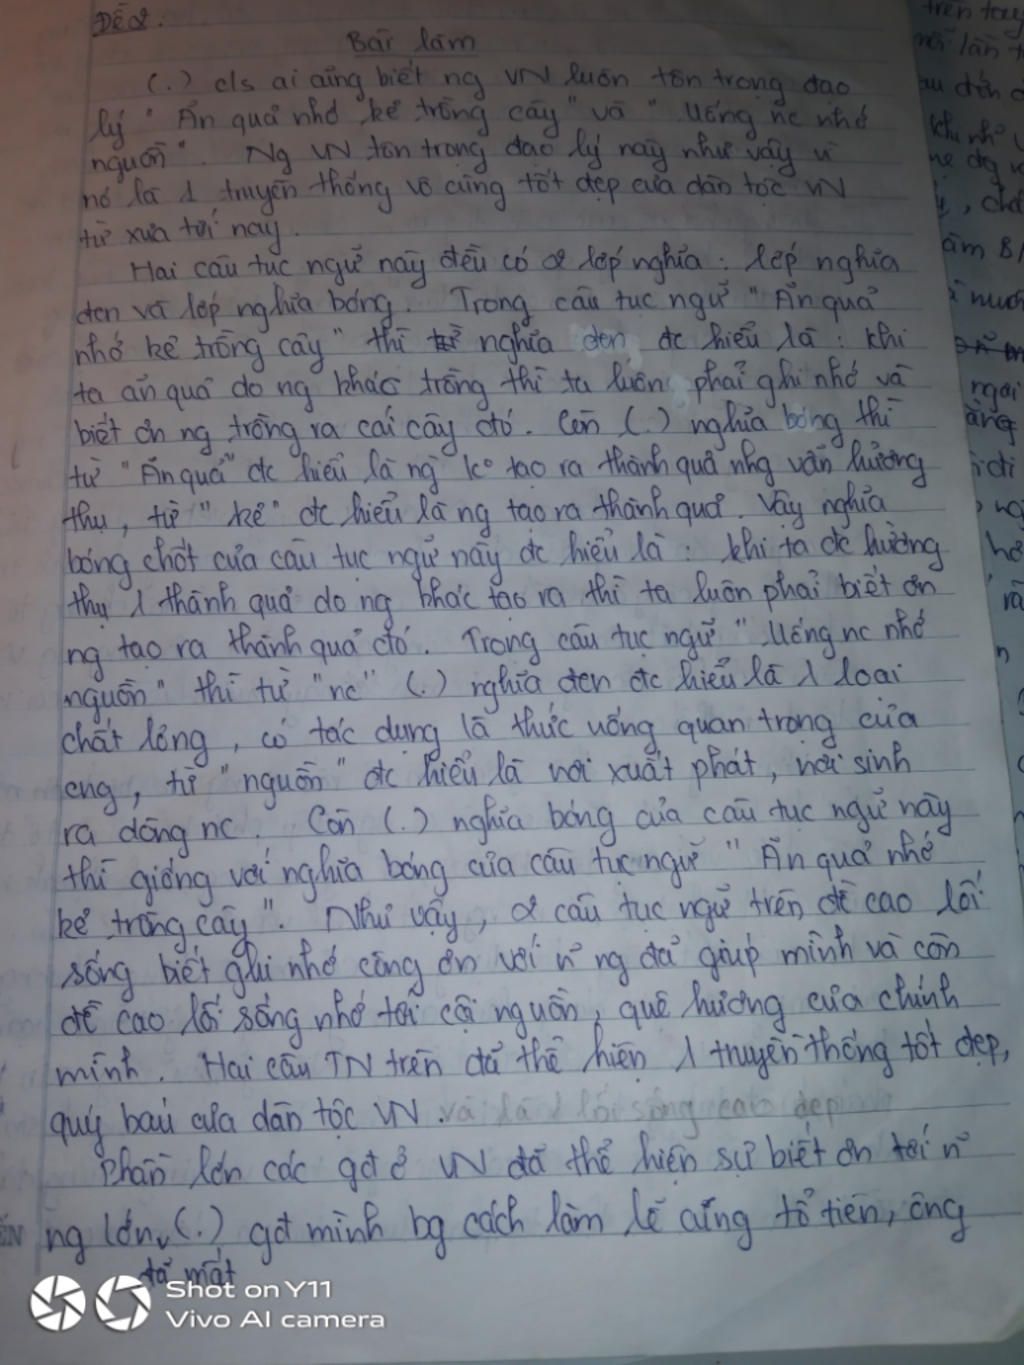 Đề 2:
Bài làm
(.) c/s ai cũng biết ng VN luôn tôn trọng đạo
lý "Ăn quả nhớ kẻ trồng cây" và "Uống nc nhớ
nguồn". Ng VN tôn trọng đạo lý này như vậy vì
nó là 1 truyền thống vô cùng tốt đẹp của dân tộc VN
từ xưa tới nay.
Hai câu tục ngữ này đều có 2 lớp nghĩa: lớp nghĩa
đen và lớp nghĩa bóng. Trong câu tục ngữ "Ăn quả
nhớ kẻ trồng cây" thì nghĩa đen đc hiểu là: khi
ta ăn quả do ng khác trồng thì ta luôn phải ghi nhớ và
biết ơn ng trồng ra cái cây đó. Còn (.) nghĩa bóng thì
từ "Ăn quả" đc hiểu là ng ko tạo ra thành quả nhg vẫn hưởng
thụ, từ "kẻ" đc hiểu là ng tạo ra thành quả. Vậy nghĩa
bóng chốt của câu tục ngữ này đc hiểu là: khi ta đc hưởng
thụ 1 thành quả do ng khác tạo ra thì ta luôn phải biết ơn
ng tạo ra thành quả đó. Trong câu tục ngữ "Uống nc nhớ
nguồn" thì từ "nc" (.) nghĩa đen đc hiểu là 1 loại
chất lỏng, có tác dụng là thức uống quan trọng của
cng, từ "nguồn" đc hiểu là nơi xuất phát, nơi sinh
ra dòng nc. Còn (.) nghĩa bóng của câu tục ngữ này
thì giống với nghĩa bóng của câu tục ngữ "Ăn quả nhớ
kẻ trồng cây". Như vậy, 2 câu tục ngữ trên đề cao lối
sống biết ghi nhớ công ơn với n~ ng đã giúp mình và còn
đề cao lối sống nhớ tới cội nguồn, quê hương của chính
mình. Hai câu TN trên đã thể hiện 1 truyền thống tốt đẹp,
quý báu của dân tộc VN. và là 1 lối sống cao đẹp
Phần lớn các gđ ở VN đã thể hiện sự biết ơn tới n~
ng lớn (.) gđ mình bg cách làm lễ cúng tổ tiên, ông
đã mất
Shot on Y11
Vivo AI camera